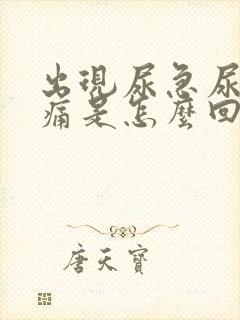 出現尿急尿
痛是怎麼回
唐天寶